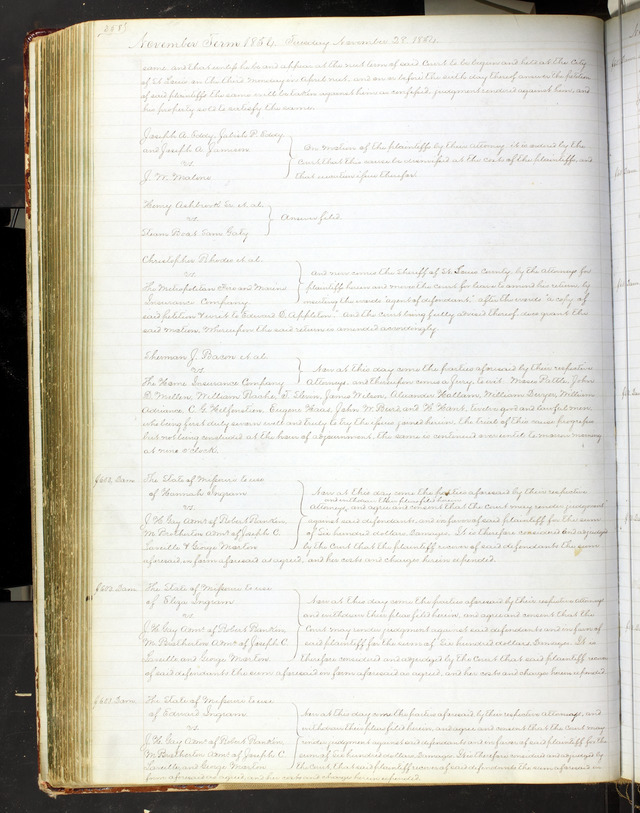 November Term 1854. Tuesday November 28. 1854.
same, and that until he be and appear at the next term of said Court to be begun and held at the City
of St Louis on the third Monday in April next, and on or before the sixth day thereof answer the petition
of said plaintiffs the same will be taken against him as confessed, judgment rendered against him, and
his property sold to satisfy the same.
Joseph A. Eddy, Jabish P. Eddy
and Joseph A. Jamison
vs.
J. W. Malone
On motion of the plaintiffs by their Attorney, it is ordered by the
Court that this cause be dismissed at the costs of the plaintiffs, and
that execution issue therefor.
Henry Ashbrook et al.
vs.
Steam Boat Sam Gaty
Answer filed.
Christopher Rhodes et al.
vs.
The Metropolitan Fire and Marine
Insurance Company
And now comes the Sheriff of St. Louis County, by the Attorneys for
plaintiff herein and moves the Court for leave to amend his return by
inserting the words "agent of defendants" after the words "a copy of
said petition & writ to Edward C. Appleton." And the Court being fully advised thereof does grant the
said motion, Whereupon the said return is amended accordingly.
Sherman J. Bacon et al.
vs.
The Home Insurance Company
Now at this day come the parties aforesaid by their respective
Attorneys, and thereupon comes a Jury to wit: John
D. Miller, William J. James Wilson, Alexander William William
C. G. Eugene Haas, John W. Bird, and H. twelve good and lawful men,
who being first duly sworn well and truly to try the issue joined herein, the trial of this cause progresses
but not being concluded at the hour of adjournment, the same is continued over until to morrow morning
at nine o'clock.
The State of Missouri to use
of Hannah Ingram
vs.
J. H. Gay Admr of Robert Rankin,
M. Brotherton Admr of Joseph C.
Laveille & George Morton
Now at this day come the parties aforesaid by their respective
and withdraw their pleas filed herein
Attorneys, and agree and consent that the Court may render judgment
against said defendants, and in favor of said plaintiff for the sum
of Six hundred dollars, Damages. It is therefore considered and adjudged
by the Court that the plaintiff recover of said defendants the sum
aforesaid in form aforesaid as agreed, and her costs and charges herein expended.
The State of Missouri to use
of Eliza Ingram
vs
J. H. Gay Admr of Robert Rankin,
M. Brotherton Admr of Joseph C.
Laveille and George Morton
Now at this day come the parties aforesaid by their respective attorneys
and withdraw their pleas filed herein, and agree and consent that the
Court may render judgment against said defendants and in favor of
said plaintiff for the sum of Six hundred dollars, Damages. It is
therefore considered and adjudged by the Court that said plaintiff recover
of said defendants the sum aforesaid in form aforesaid as agreed, and her costs and charges herein expended.
The State of Missouri to use
of Edward Ingram
vs.
J. H. Gay Admr of Robert Rankin,
M. Brotherton Admr of Joseph C.
Laveille and George Morton
Now at this day come the parties aforesaid, by their respective attorneys, and
withdraw their pleas filed herein, and agree and consent that the Court may
render judgment against said defendants and in favor of said plaintiff for the
sum of Six hundred dollars, Damages. It is therefore considered and adjudged by
the Court that said plaintiff recover of said defendants the sum aforesaid in
form aforesaid as agreed, and his costs and charges herein expended.